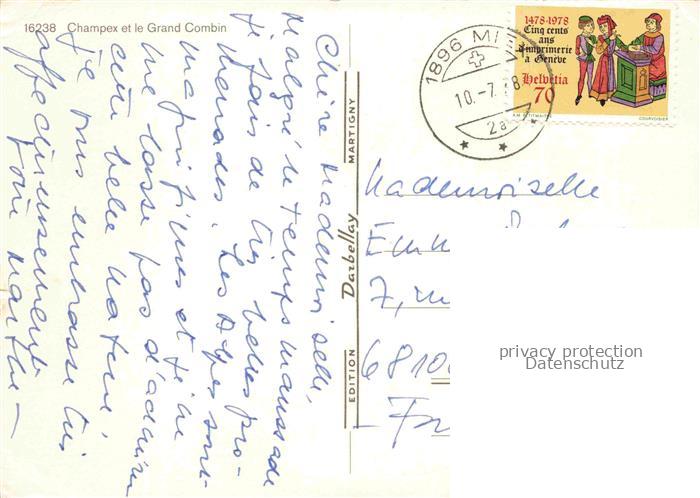 16238 Champex et le Grand Combin
Chère Mademoiselle,
Malgré le temps maussade
je fais de très belles pro-
menades. Les Alpes sont
magnifiques et je ne
me lasse pas d'admirer
cette belle nature.
Je vous embrasse très
affectueusement
Marthe —
EDITION Darbellay MARTIGNY
1896 MI
10.-7. 8
2a
1478-1978
Cinq cents
ans
d'imprimerie
à Genève
Helvetia
70
COURVOISIER
Mademoiselle
7,
6810
privacy protection
Datenschutz